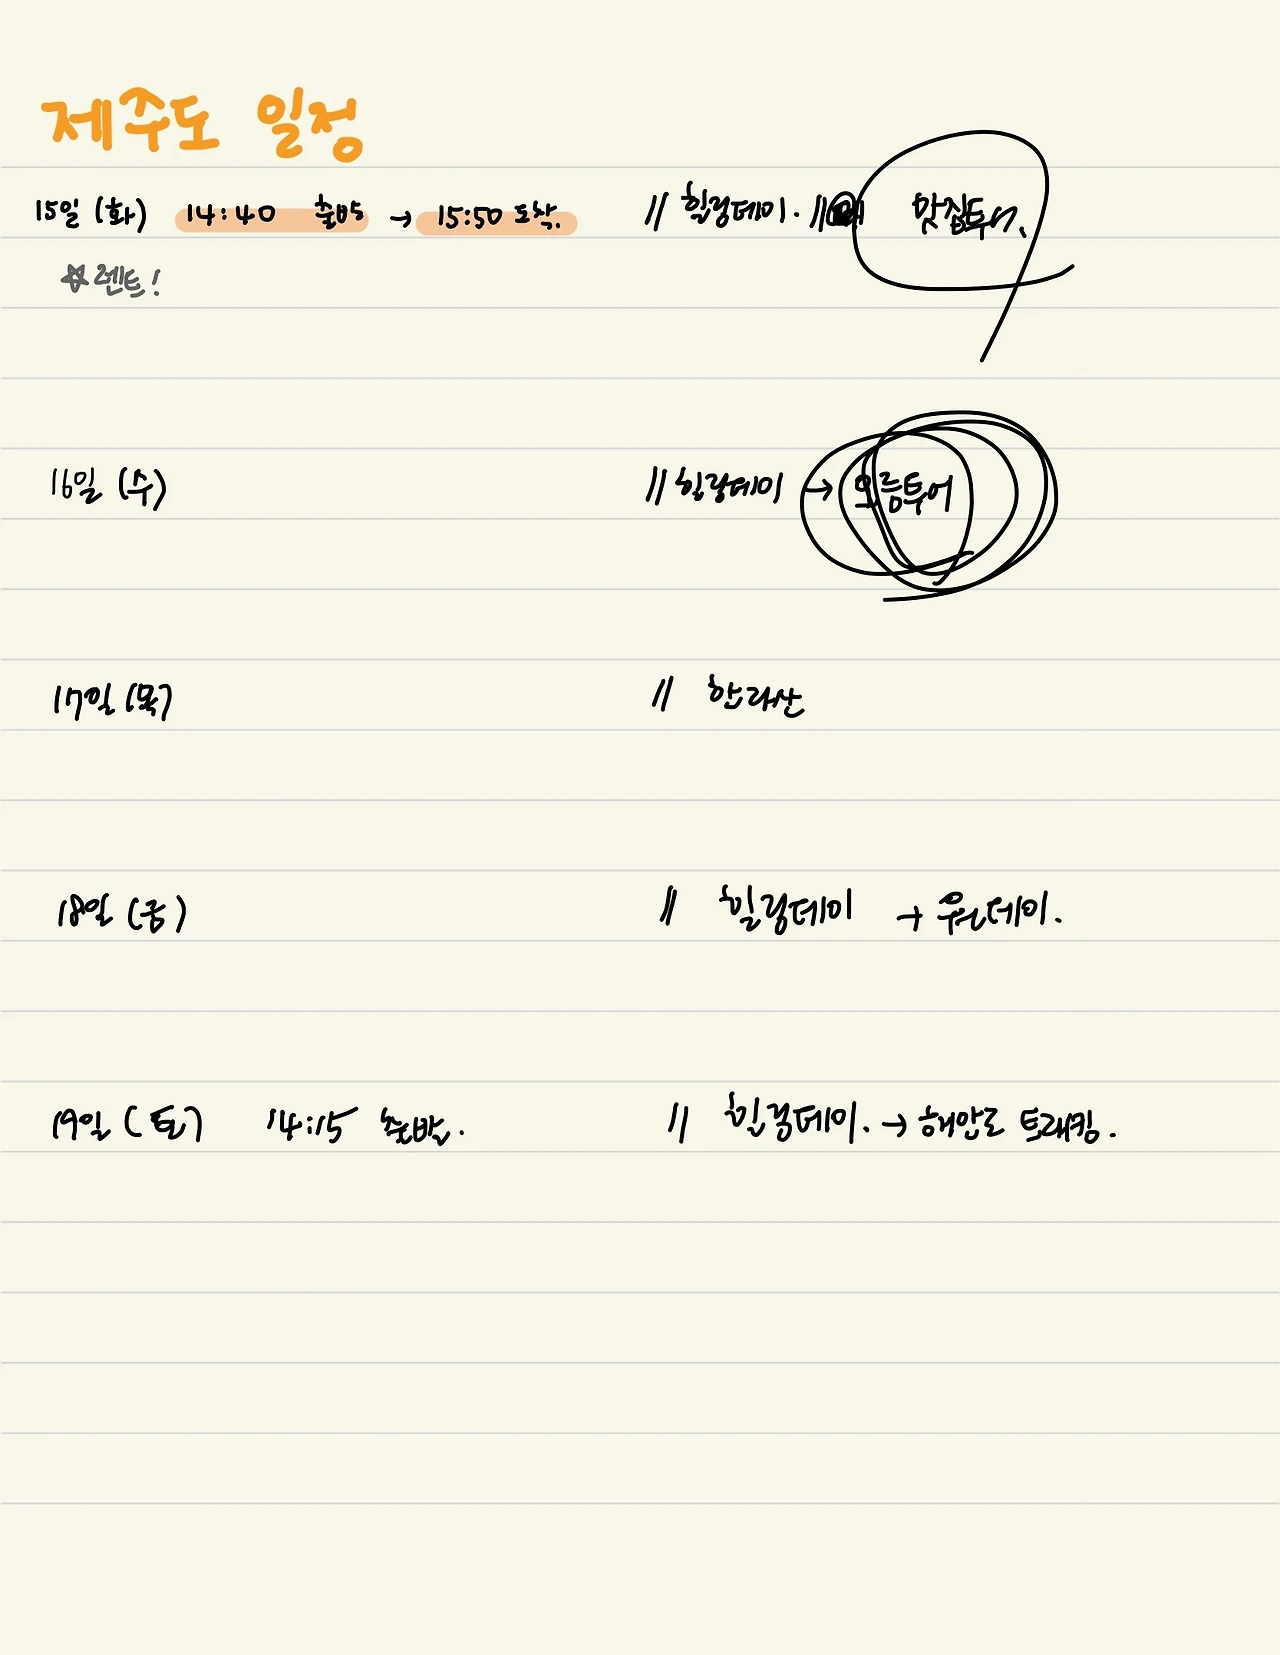 제주도 일정
15일 (화) 14:40 출발 → 15:50 도착. // 힐링데이. // 맛집투어.
☆ 렌트!
16일 (수) // 힐링데이 → 오름투어
17일 (목) // 한라산
18일 (금) // 힐링데이 → 원데이.
19일 (토) 14:15 출발. // 힐링데이. → 해안도 트래킹.